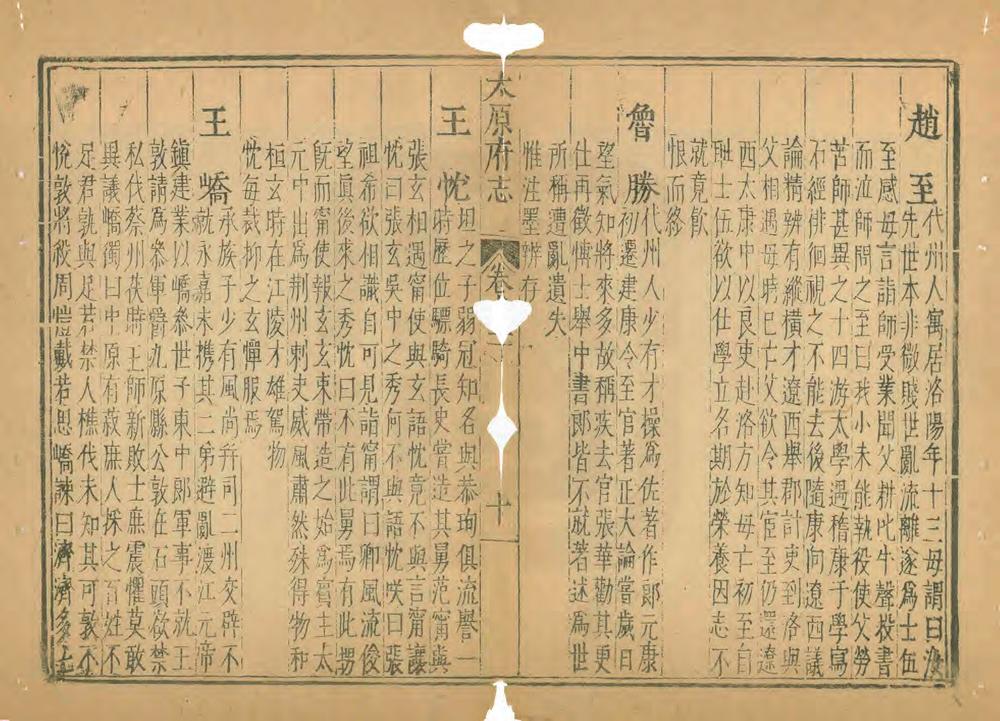 趙至　代州人寓居洛陽年十三母謂曰汝
先世本非微賤世亂流離遂爲士伍
至感母言詣師受業聞父耕叱牛聲投書
而泣師問之至曰我小未能執役使父勞
苦師甚異之十四游太學遇嵇康于學寫
石經徘徊視之不能去後隨康向遼西議
論精辨有縱橫才遼西舉郡計吏到洛與
父相遇母時已亡父欲令其宦至仍還遼
西太康中以良吏赴洛方知母亡初至自
耻士伍欲以仕學立名期於榮養因志不
就竟飲
恨而終
魯勝　代州人少有才操爲佐著作郎元康
初遷建康令至官著正大論嘗歲日
望氣知將來多故稱疾去官張華勸其更
仕再徵博士舉中書郎皆不就著述爲世
所稱遭亂遺失
惟注墨辨存
太原府志　卷　十
王忱　坦之子弱冠知名與恭珣俱流譽一
時歷位驃騎長史嘗造其舅范甯與
張玄相遇甯使與玄語忱竟不與言甯讓
忱曰張玄吳中之秀何不與語忱咲曰張
祖希欲相識自可見詣甯謂曰卿風流俊
望眞後來之秀忱曰不有此舅焉有此甥
旣而甯使報玄玄束帶造之始爲賓主太
元中出爲荆州刺史威風肅然殊得物和
桓玄時在江陵才雄駕物
忱每裁抑之玄憚服焉
王嶠　承族子少有風尚幷司二州交辟不
就永嘉末携其二弟避亂渡江元帝
鎭建業以嶠參世子東中郎軍事不就王
敦請爲參軍爵九原縣公敦在石頭欲禁
私伐蔡州荻時王師新敗士庶震懼莫敢
異議嶠獨曰中原有菽庶人採之百姓不
足君孰與足若禁人樵伐未知其可敦不
悅敦將殺周顗戴若思嶠諫曰濟濟多士